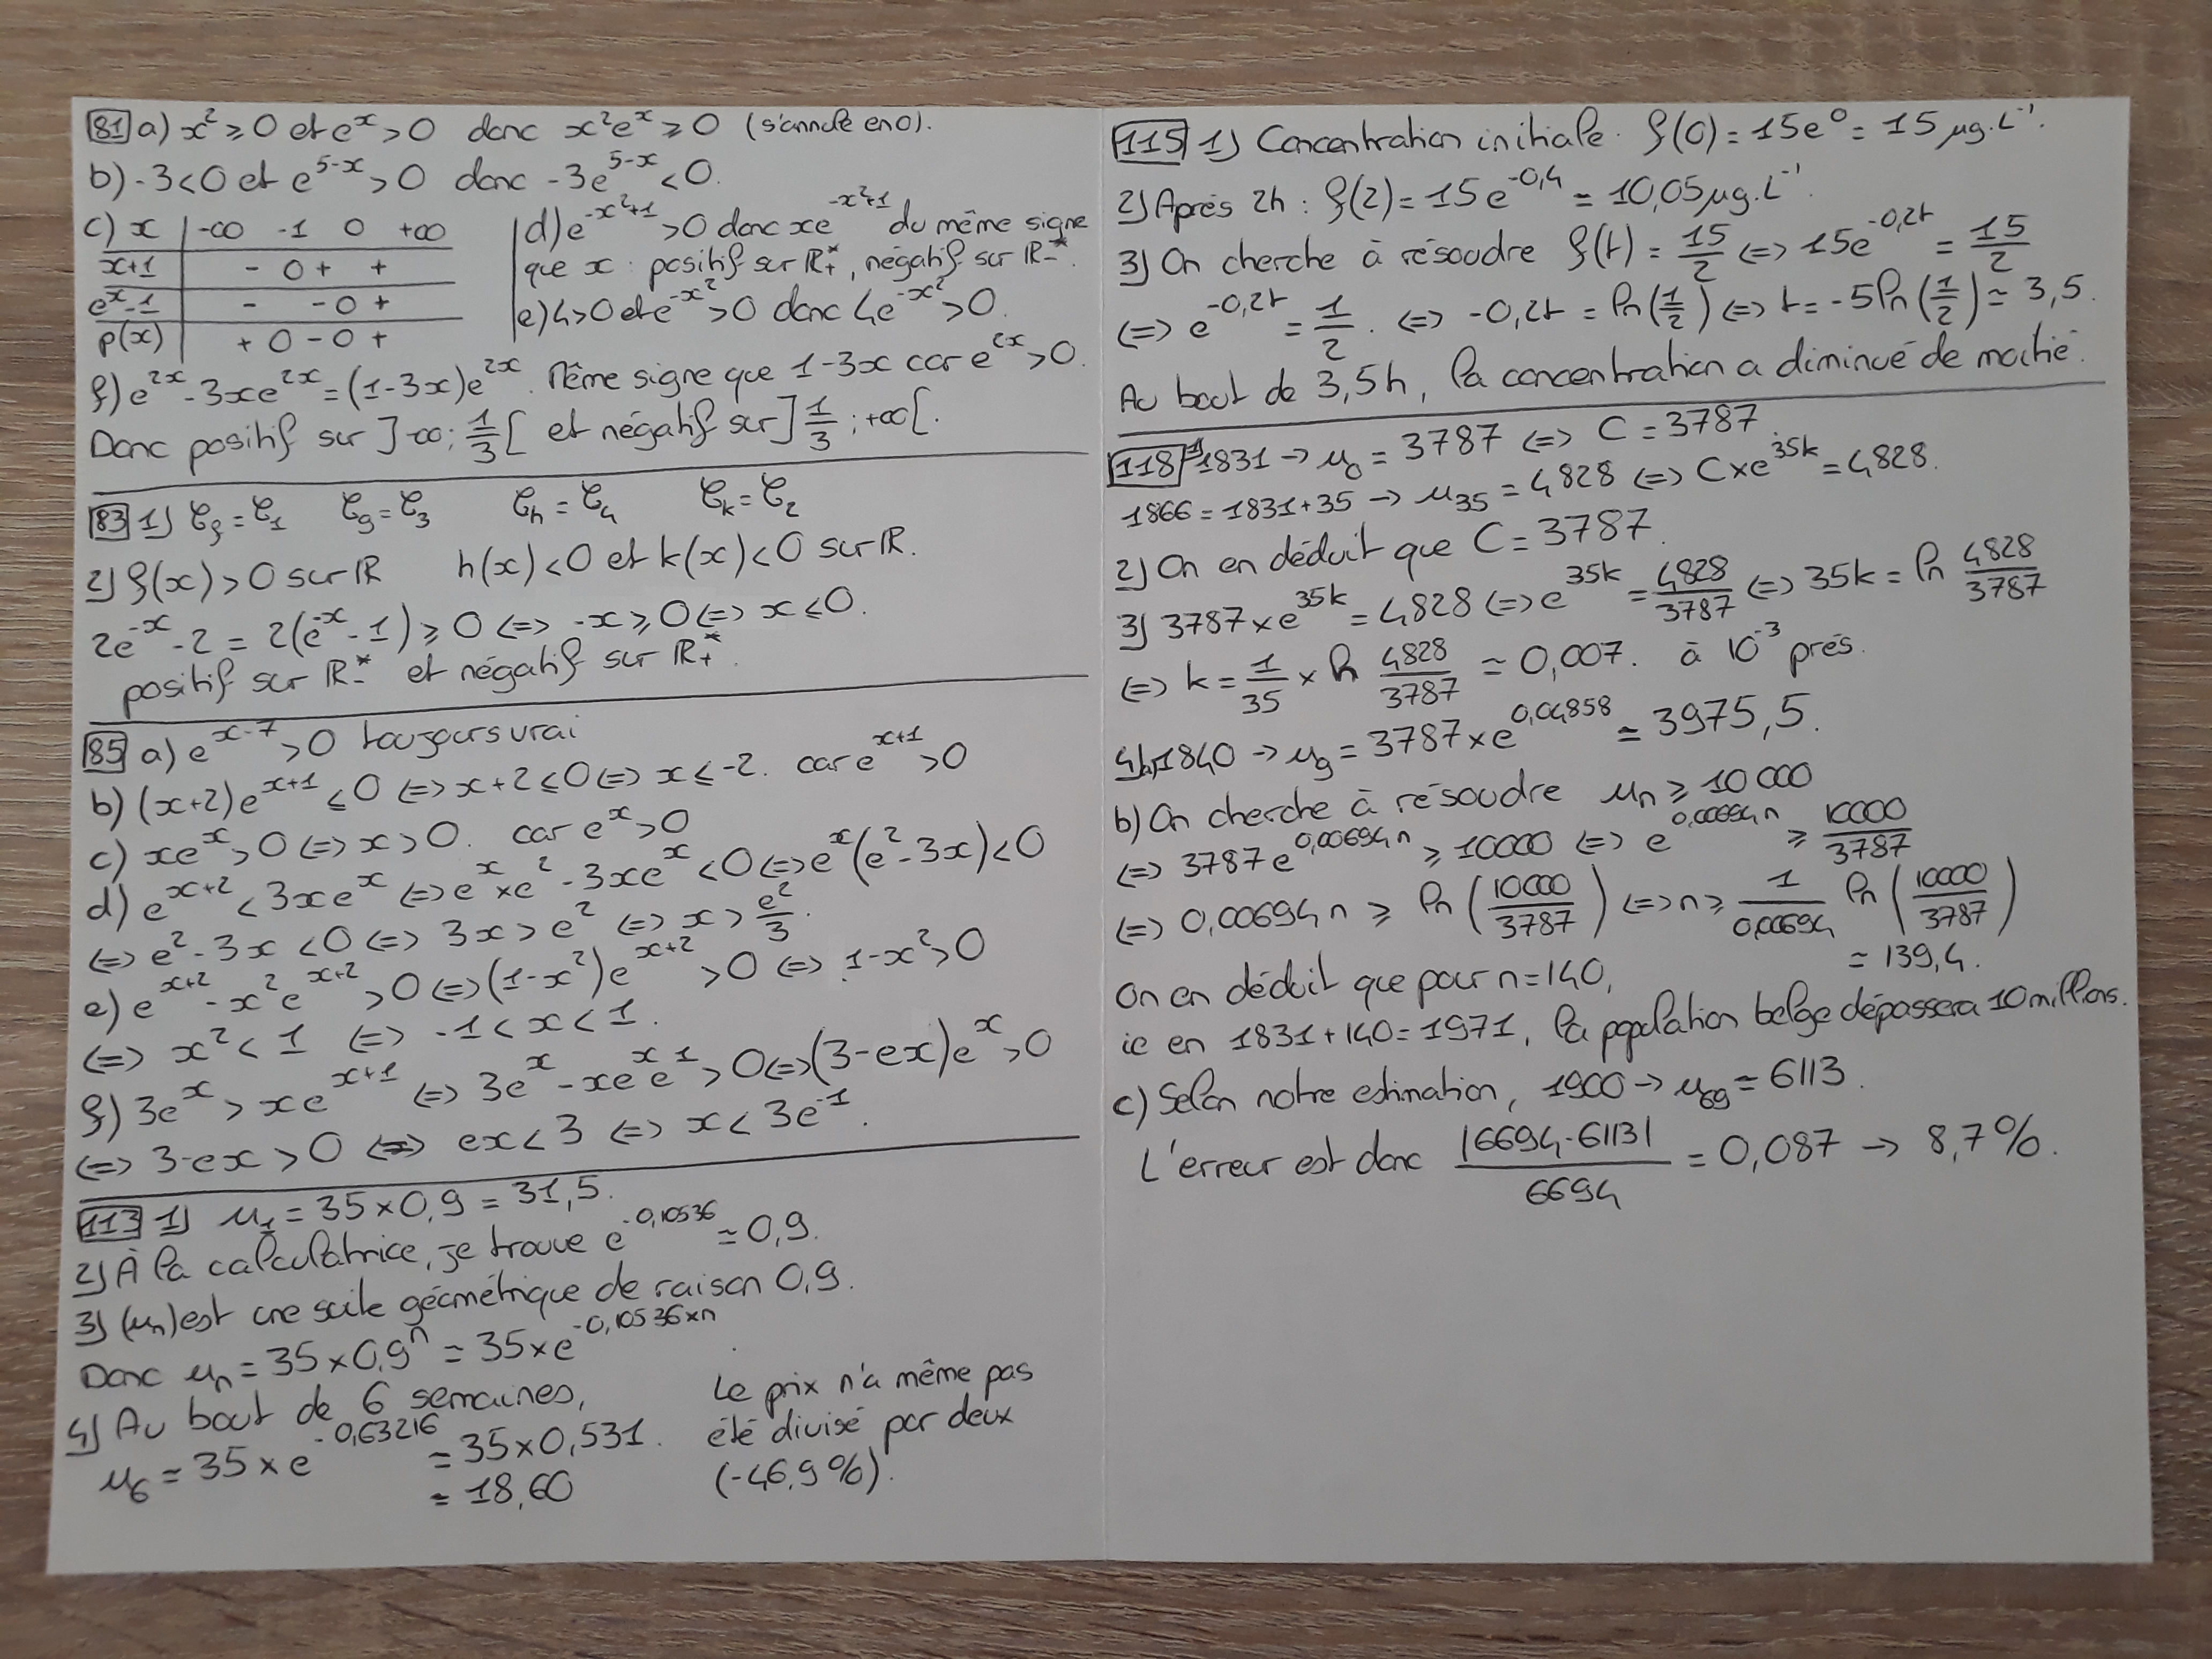 81 a) x² ≥ 0 et eˣ > 0 donc x²eˣ ≥ 0 (s'annule en 0).
b) -3 < 0 et e^(5-x) > 0 donc -3e^(5-x) < 0.
c) x | -∞ -1 0 +∞
x+1 | - 0 + +
eˣ-1 | - - 0 +
p(x) | + 0 - 0 +
d) e^(-x²+1) > 0 donc xe^(-x²+1) du même signe
que x : positif sur ℝ₊*, négatif sur ℝ₋*.
e) 4 > 0 et e^(-x²) > 0 donc 4e^(-x²) > 0.
f) e^(2x) - 3xe^(2x) = (1-3x)e^(2x). Même signe que 1-3x car e^(2x) > 0.
Donc positif sur ]-∞; 1/3[ et négatif sur ]1/3; +∞[.
83 1) 𝒞f = 𝒞1 𝒞g = 𝒞3 𝒞h = 𝒞4 𝒞k = 𝒞2
2) f(x) > 0 sur ℝ h(x) < 0 et k(x) < 0 sur ℝ.
2e^(-x) - 2 = 2(e^(-x) - 1) ≥ 0 <=> -x ≥ 0 <=> x ≤ 0.
positif sur ℝ₋* et négatif sur ℝ₊*.
85 a) e^(x-7) > 0 toujours vrai
b) (x+2)e^(x+1) ≤ 0 <=> x+2 ≤ 0 <=> x ≤ -2. car e^(x+1) > 0
c) xeˣ > 0 <=> x > 0. car eˣ > 0
d) e^(x+2) < 3xeˣ <=> eˣ × e² - 3xeˣ < 0 <=> eˣ(e² - 3x) < 0
<=> e² - 3x < 0 <=> 3x > e² <=> x > e²/3.
e) e^(x+2) - x²e^(x+2) > 0 <=> (1-x²)e^(x+2) > 0 <=> 1-x² > 0
<=> x² < 1 <=> -1 < x < 1.
f) 3eˣ > xe^(x+1) <=> 3eˣ - xeˣe¹ > 0 <=> (3-ex)eˣ > 0
<=> 3-ex > 0 <=> ex < 3 <=> x < 3e⁻¹.
113 1) u₁ = 35 × 0,9 = 31,5.
2) À la calculatrice, je trouve e^(-0,10536) ≃ 0,9.
3) (uₙ) est une suite géométrique de raison 0,9.
Donc uₙ = 35 × 0,9ⁿ ≃ 35 × e^(-0,10536×n)
4) Au bout de 6 semaines,
u₆ ≃ 35 × e^(-0,63216) ≃ 35 × 0,531.
≃ 18,60
Le prix n'a même pas
été divisé par deux
(-46,9%).
115 1) Concentration initiale. f(0) = 15e⁰ = 15 µg.L⁻¹.
2) Après 2h : f(2) = 15e^(-0,4) ≃ 10,05 µg.L⁻¹.
3) On cherche à résoudre f(t) = 15/2 <=> 15e^(-0,2t) = 15/2
<=> e^(-0,2t) = 1/2. <=> -0,2t = ln(1/2) <=> t = -5ln(1/2) ≃ 3,5.
Au bout de 3,5h, la concentration a diminué de moitié.
118 1) 1831 → u₀ = 3787 <=> C = 3787.
1866 = 1831+35 → u₃₅ = 4828 <=> C × e^(35k) = 4828.
2) On en déduit que C = 3787.
3) 3787 × e^(35k) = 4828 <=> e^(35k) = 4828/3787 <=> 35k = ln 4828/3787
<=> k = 1/35 × ln 4828/3787 ≃ 0,007. à 10⁻³ près.
4) a) 1840 → u₉ = 3787 × e^(0,04858) ≃ 3975,5.
b) On cherche à résoudre uₙ ≥ 10000
<=> 3787e^(0,00694n) ≥ 10000 <=> e^(0,00694n) ≥ 10000/3787
<=> 0,00694n ≥ ln(10000/3787) <=> n ≥ 1/0,00694 ln(10000/3787)
≃ 139,4.
On en déduit que pour n = 140,
ie en 1831+140 = 1971, la population belge dépassera 10 millions.
c) Selon notre estimation, 1900 → u₆₉ ≃ 6113.
L'erreur est donc |6694-6113|/6694 = 0,087 → 8,7%.